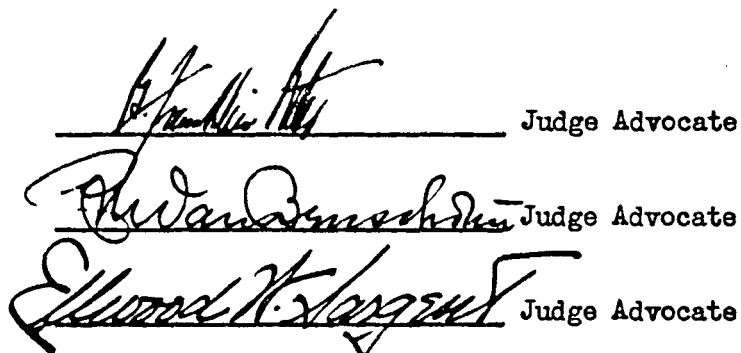 B. Franklin Riter Judge Advocate
Van Benschoten Judge Advocate
Ellwood W. Sargent Judge Advocate